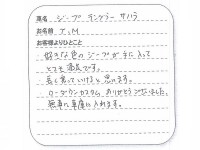 車名 ジープ ラングラー サハラ
お名前 T.M
お客様よりひとこと
好きな色のジープが手に入って
とても満足です。
長く乗っていけたらと思います。
ローダウンカスタム、ありがとうございました。
無事に車庫に入れます。